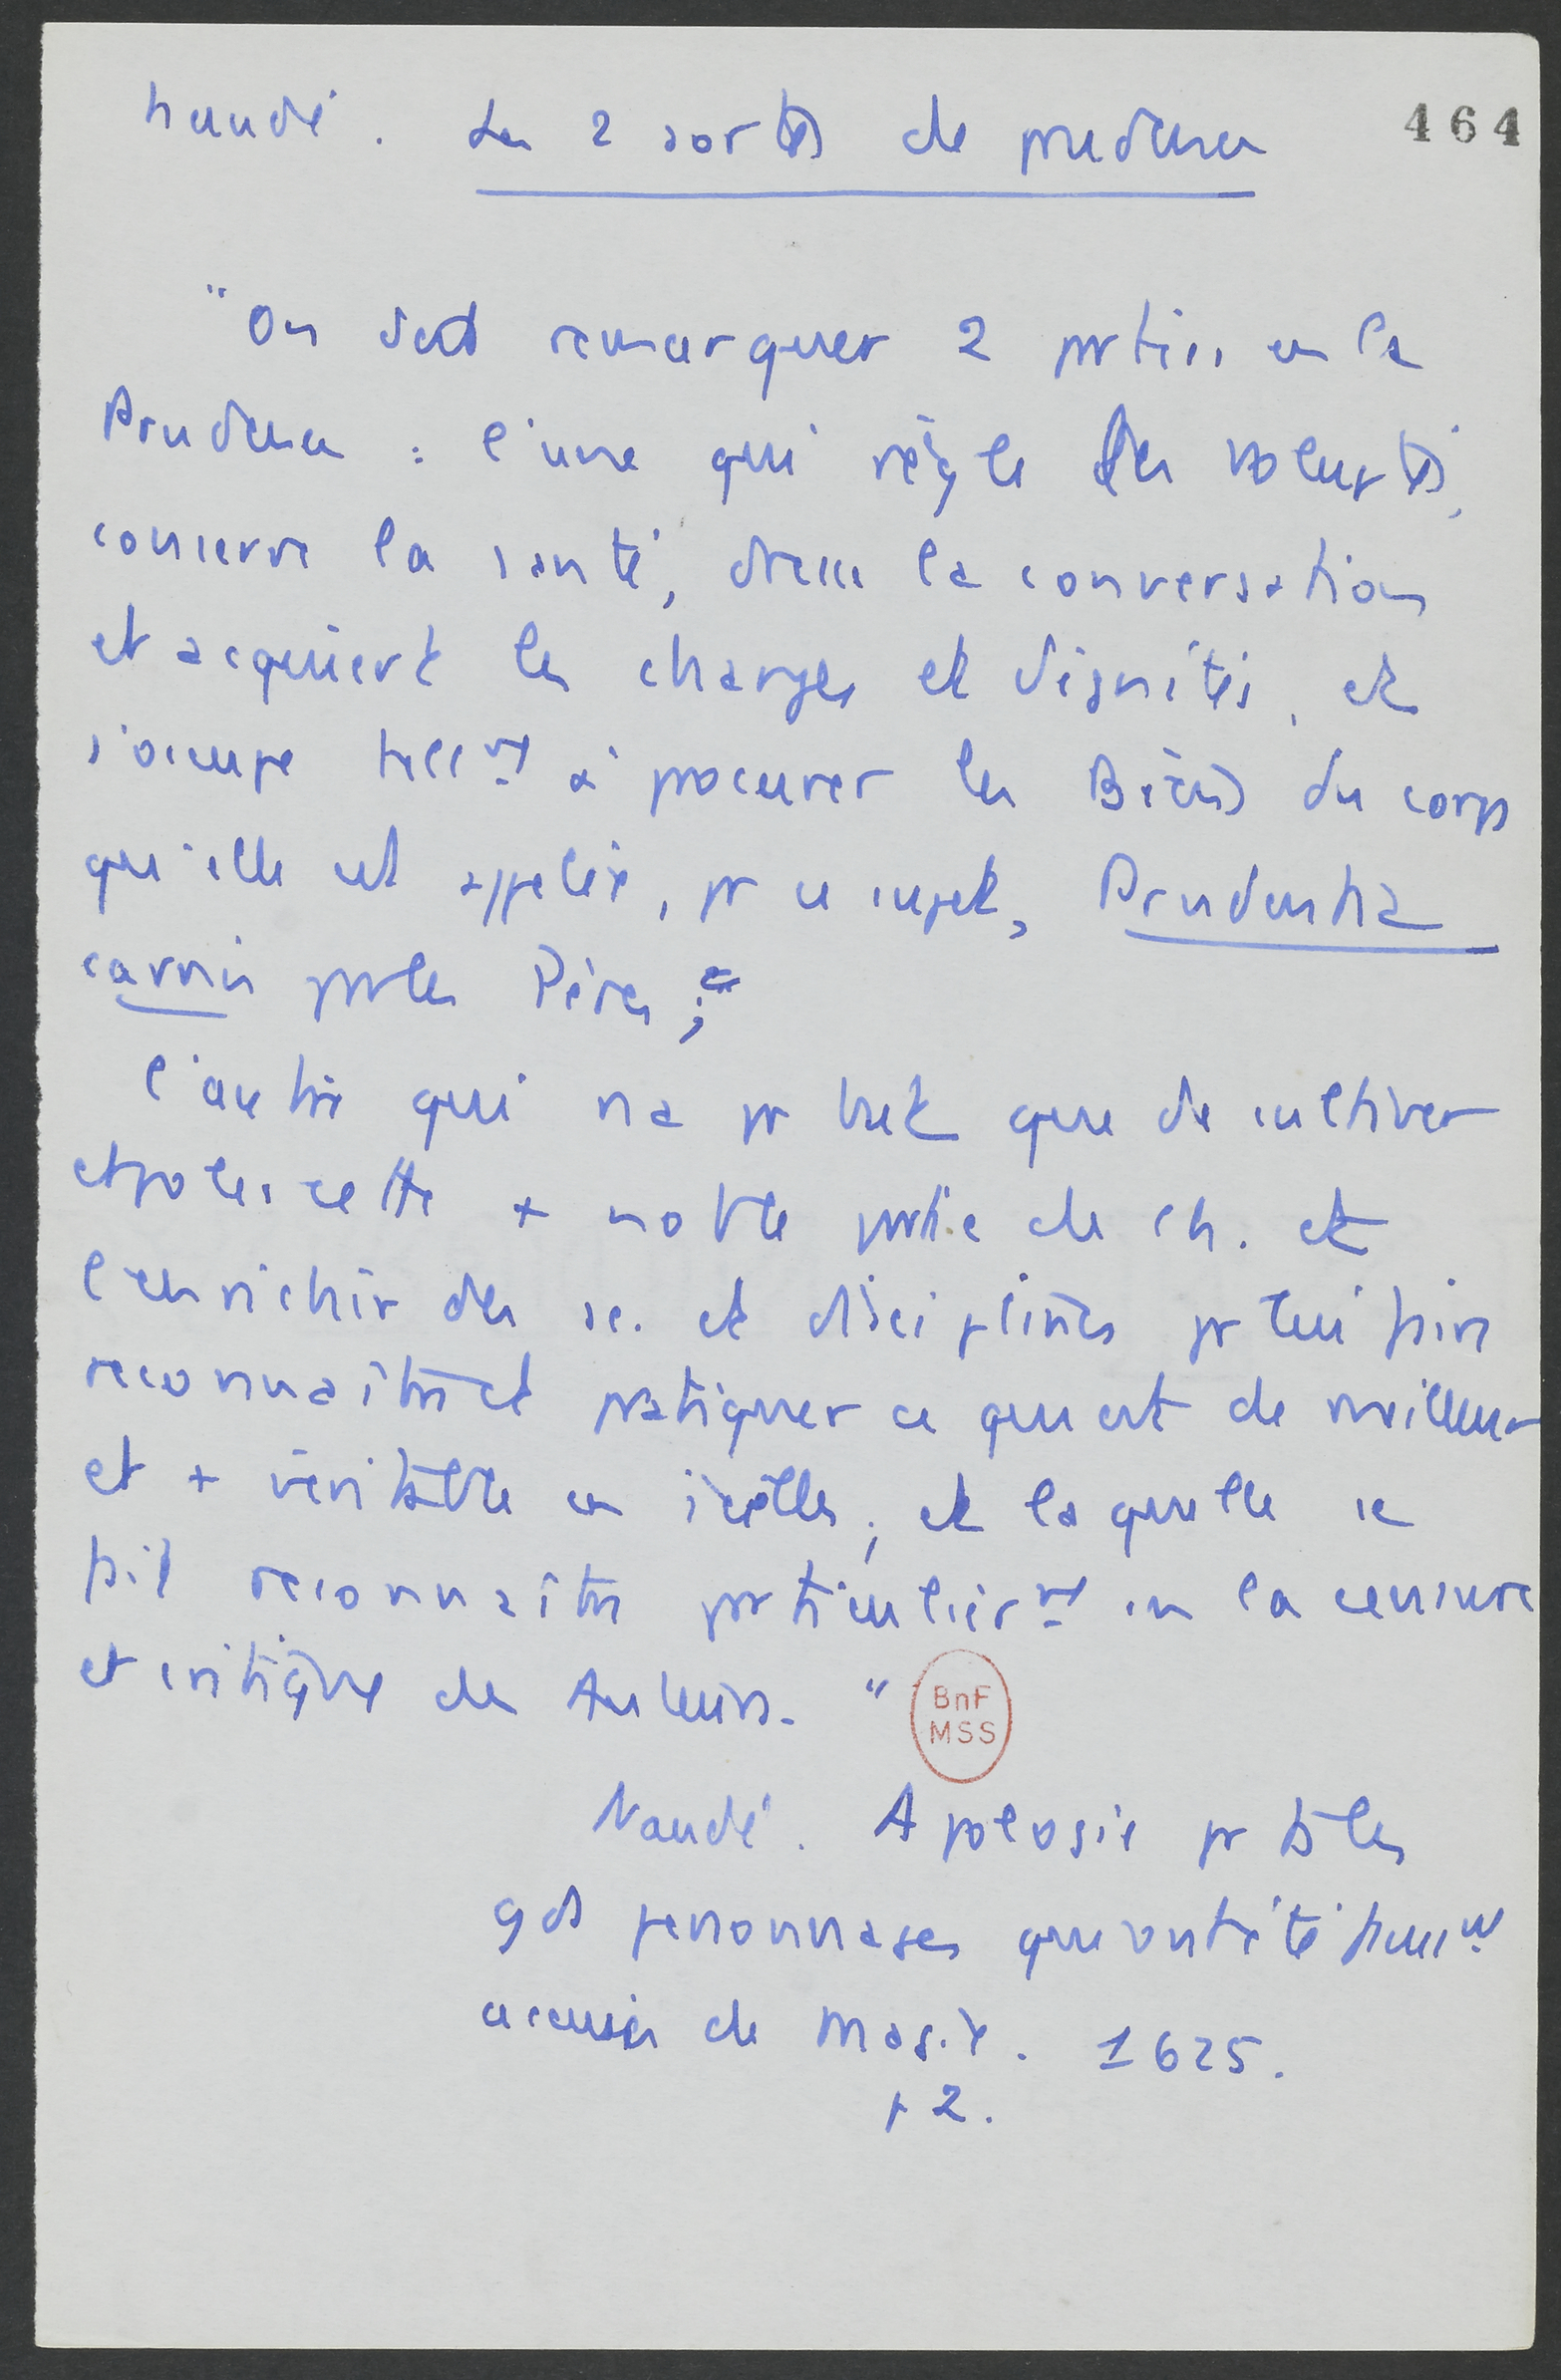 Naudé. Les 2 sortes de prudence 464
"On doit remarquer 2 parties en la
Prudence : l'une qui règle les voluptés,
conserve la santé, dresse la conversation
et acquiert les charges et dignités, et
s'occupe tellmt à procurer les Biens du corps
qu'elle est appelée, pr ce sujet, Prudentia
carnis par les Pères ;"
l'autre qui n'a pr but que de cultiver
et polir cette + noble partie de l'h. et
l'enrichir des sc. et disciplines pr lui faire
reconnaître et pratiquer ce qui est de meilleur
et + véritable en icelles ; et laquelle se
fait reconnaître particulièrmt en la censure
et critique des Auteurs. "
BnF
MSS
Naudé. Apologie pr ts les
gds personnages qui ont été faussmt
accusés de Magie. 1625.
p 2.